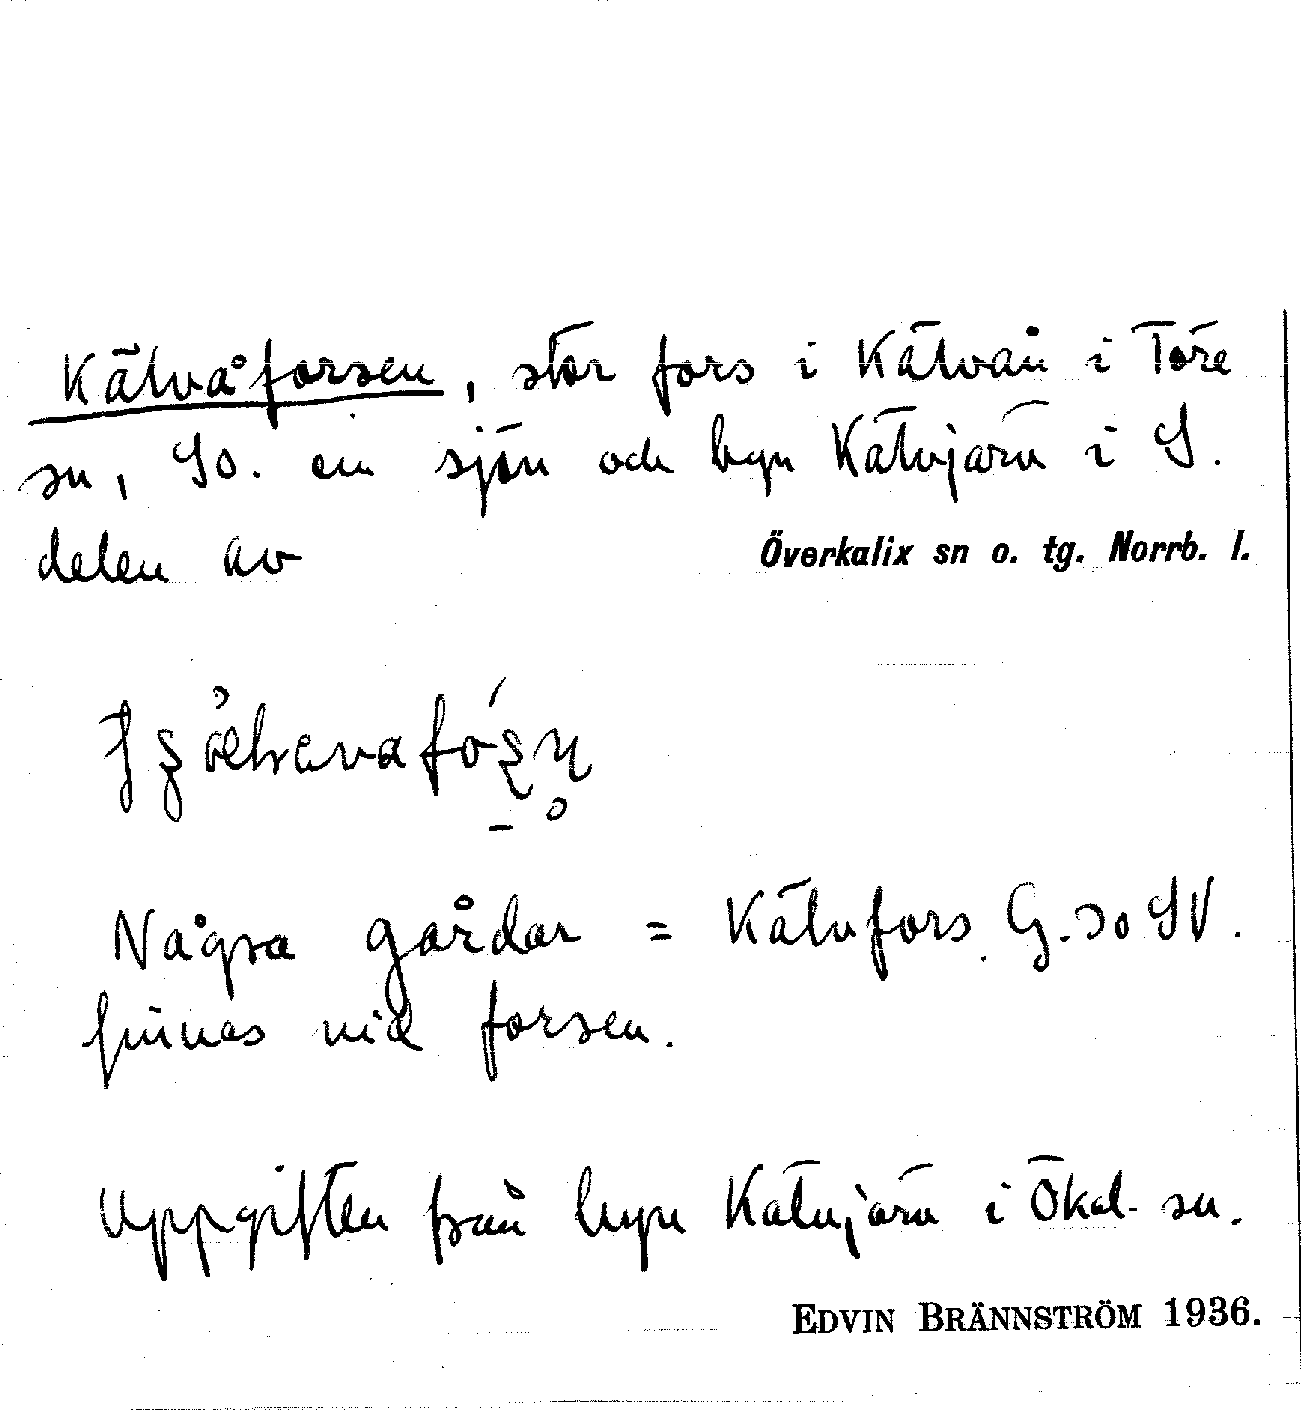 Kälvåforsen, stor fors i Kälvån i Töre
sn, SO. om sjön och byn Kälvjärv i S.
delen av Överkalix sn o. tg. Norrb. l.
Några gårdar = Kälvfors G. SO SV.
finnes vid forsen.
Uppgiften från byn Kälvjärv i Ökal. sn.
EDVIN BRÄNNSTRÖM 1936.